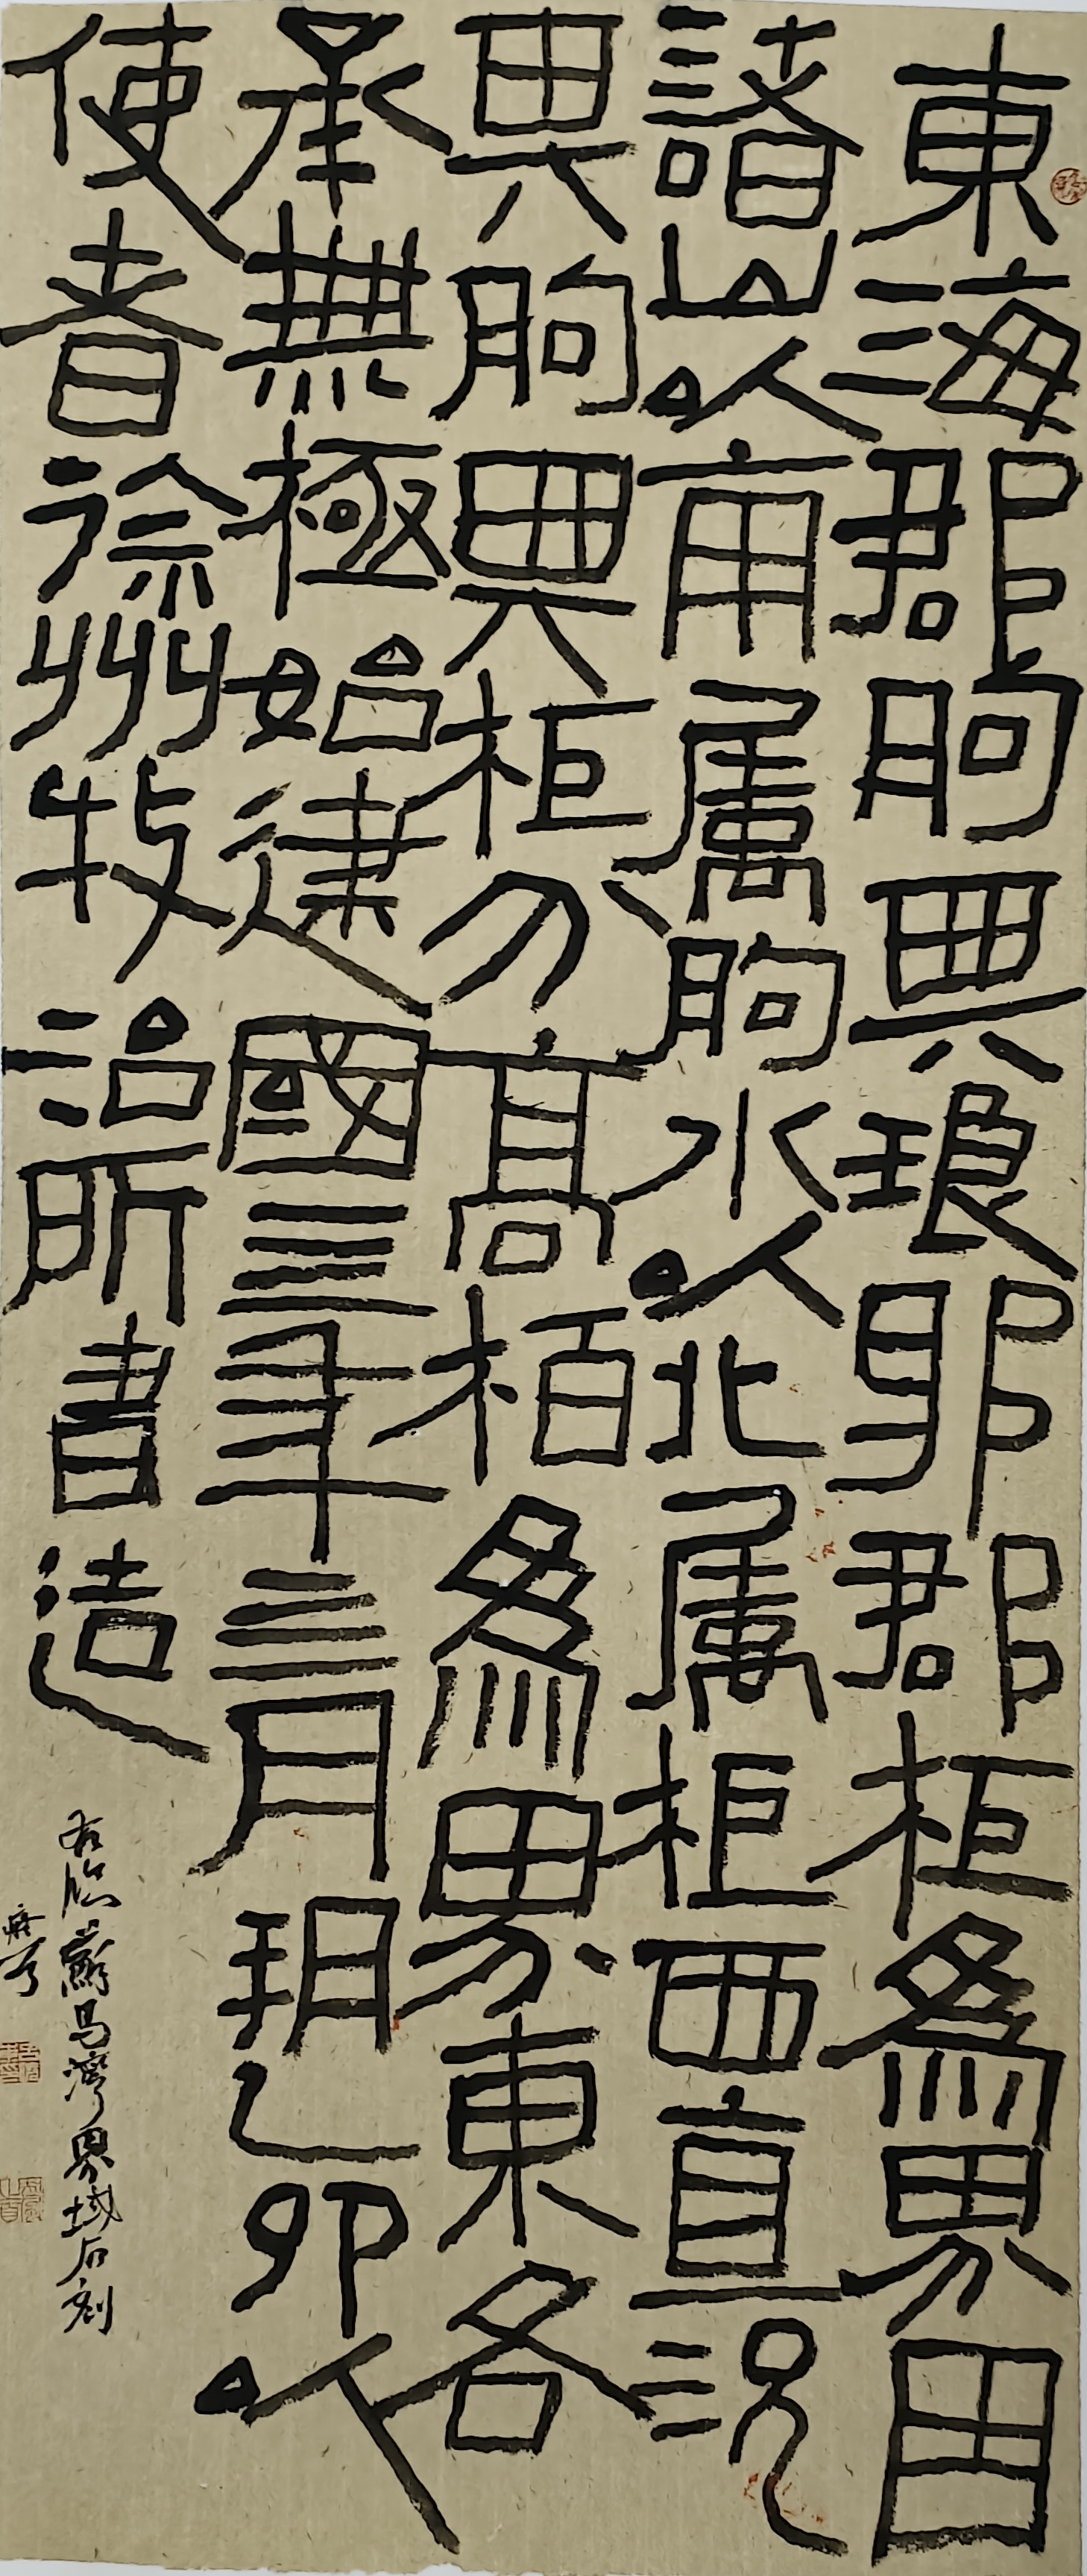 東海郡朐與琅邪郡柜為界因
諸山以南屬朐水以北屬柜西直況
其朐與柜分高栢為界東各
承無極始建國四年四月朔乙卯以
使者徐州牧治所書造
右臨蘇馬灣界域石刻